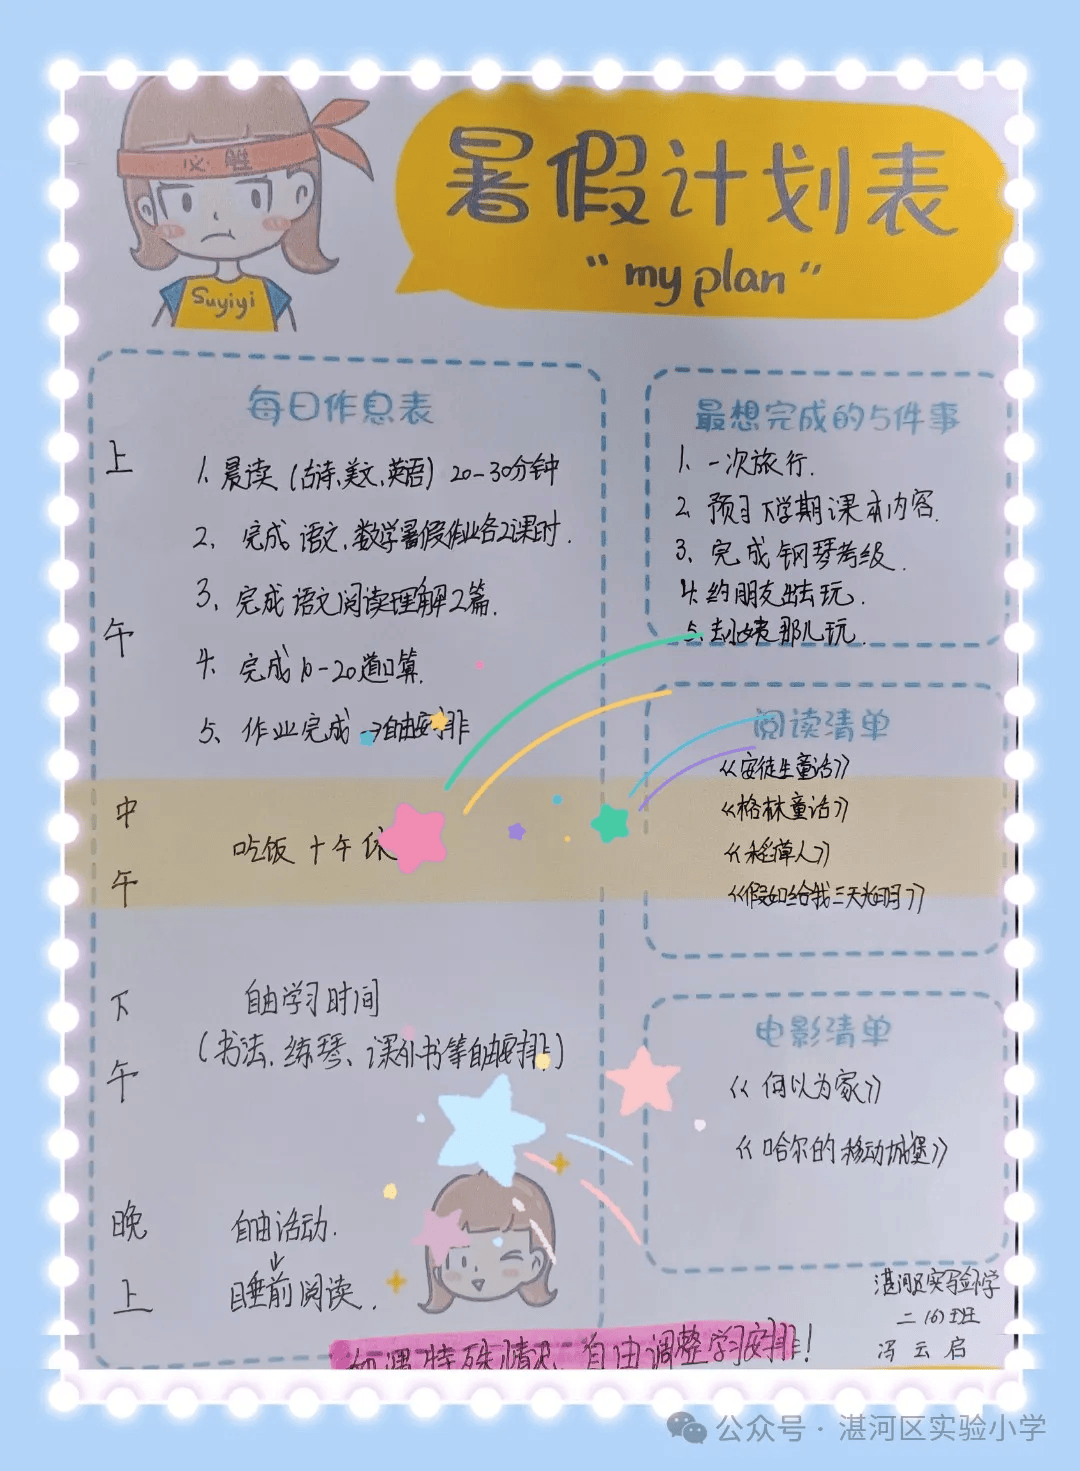 必胜
Suyiyi
暑假计划表
"my plan"
每日作息表
上午
1、晨读(古诗、美文、英语) 20-30分钟
2、完成语文、数学暑假作业各2课时.
3、完成语文阅读理解2篇.
4、完成10-20道口算.
5、作业完成→自由安排
中午
吃饭+午休
下午
自由学习时间
(书法、练琴、课外书等自由安排)
晚上
自由活动.
↓
睡前阅读.
最想完成的5件事
1、一次旅行.
2、预习下学期课本内容.
3、完成钢琴考级.
4、约朋友出去玩.
5、去小姨那儿玩.
阅读清单
《安徒生童话》
《格林童话》
《稻草人》
《假如给我三天光明》
电影清单
《何以为家》
《哈尔的移动城堡》
湛河区实验小学
二(6)班
冯云启
如遇特殊情况,自由调整学习安排!
公众号·湛河区实验小学